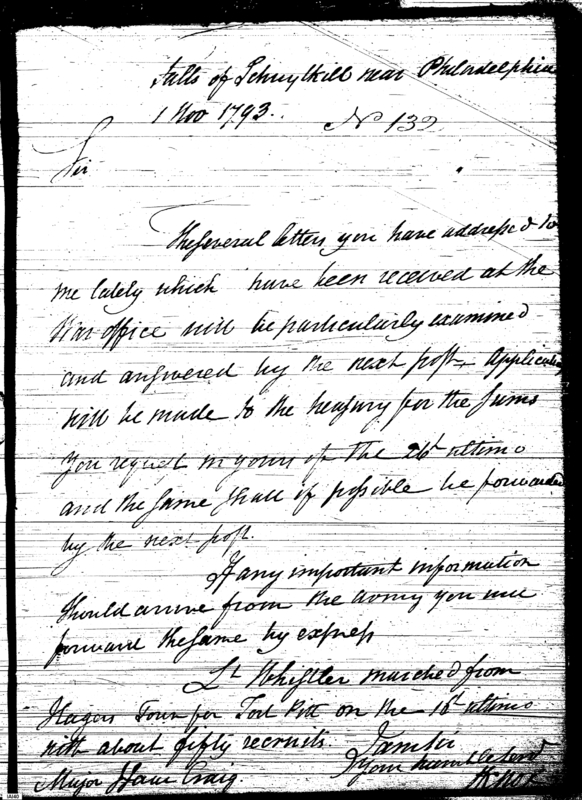 Falls of Schuylkill near Philadelphia
1 Nov 1793.. No 139
Sir
The several letters you have addressed to
me lately which have been received at the
War office will be particularly examined
and answered by the next post. Application
will be made to the treasury for the sums
you request in yours of the 26th ultimo
and the same shall if possible be forwarded
by the next post.
If any important information
should arrive from the army you will
forward the same by express
Lt Whistler marched from
Hagers Town for Fort Pitt on the 16th ultimo
with about fifty recruits. I am Sir
Your humble Servt
Major Isaac Craig. HKnox